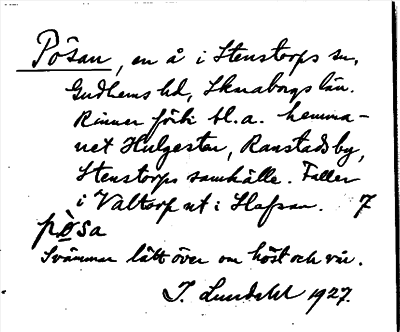 Pösan, en å i Stenstorps sn,
Gudhems hd, Skaraborgs län.
Rinner förbi bl.a. hemma-
net Hulgestar, Ranstads by,
Stenstorps samhälle. Faller
i Valtorp ut i Slafsan. 7
pò̱sa
Svämmar lätt över om höst och vår.
J. Lundahl 1927.